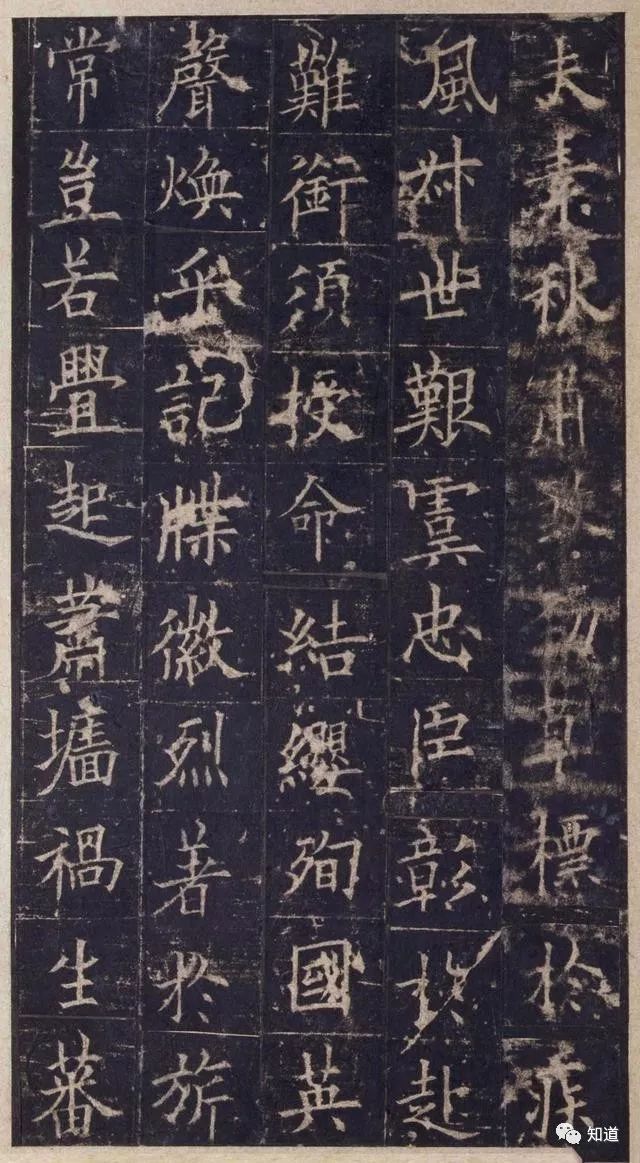 夫素秋肅草標於疾
風叔世艱虞忠臣彰於赴
難銜須授命結纓殉國英
聲煥乎記牒徽烈著於旂
常豈若舋起蕭墻禍生蕃
知道